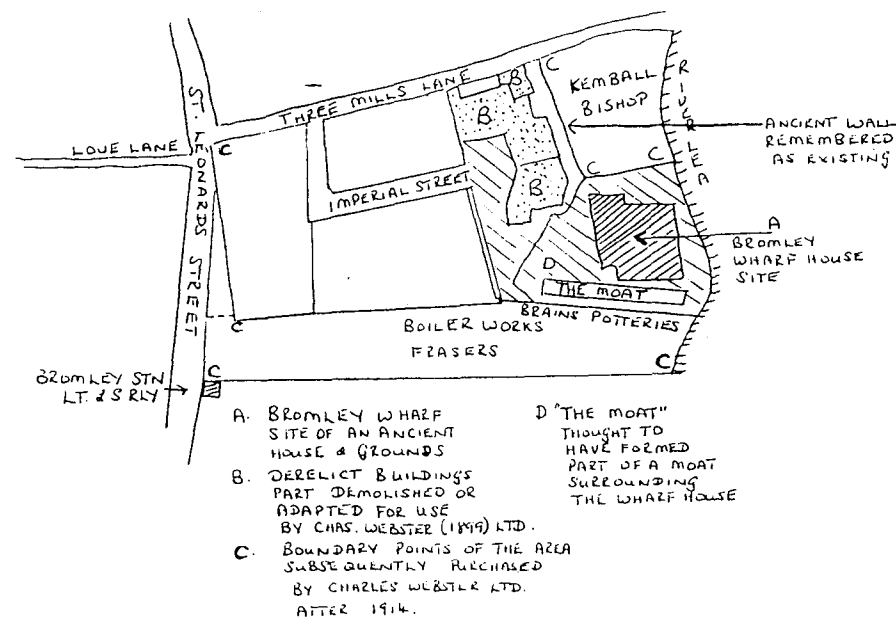 THREE MILLS LANE
ST. LEONARDS STREET
LOVE LANE
C
IMPERIAL STREET
B
B
B
C
KEMBALL
BISHOP
RIVER LEA
ANCIENT WALL
REMEMBERED
AS EXISTING
C
C
A
BROMLEY
WHARF HOUSE
SITE
D
THE MOAT
BRAINS POTTERIES
C
BOILER WORKS
FRASERS
C
C
BROMLEY STN
LT. & S RLY
A. BROMLEY WHARF
SITE OF AN ANCIENT
HOUSE & GROUNDS
B. DERELICT BUILDINGS
PART DEMOLISHED OR
ADAPTED FOR USE
BY CHAS. WEBSTER (1899) LTD.
C. BOUNDARY POINTS OF THE AREA
SUBSEQUENTLY PURCHASED
BY CHARLES WEBSTER LTD.
AFTER 1914.
D "THE MOAT"
THOUGHT TO
HAVE FORMED
PART OF A MOAT
SURROUNDING
THE WHARF HOUSE